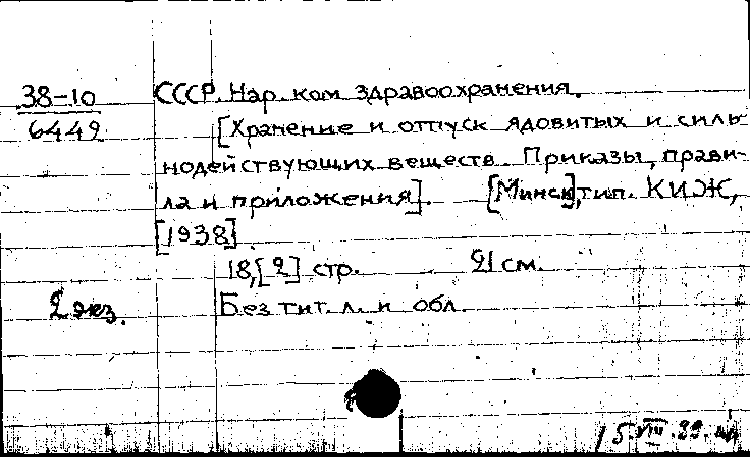 38-10
6449
СССР. Нар. ком. здравоохранения.
[Хранение и отпуск ядовитых и силь-
нодействующих веществ. Приказы, прави-
ла и приложения]. [Минск], тип. КИЖ,
[1938].
18,[2] стр. 21 см.
2 экз.
Без тит. л. и обл.
15.VIII.39.